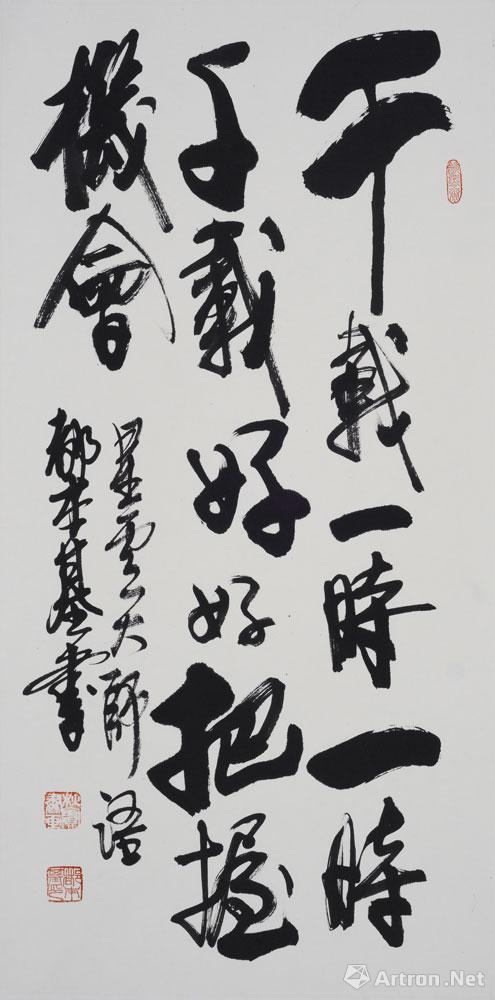 千載一時一時
千載好好把握
機會
星雲大師語
鄢本基書
Artron.Net